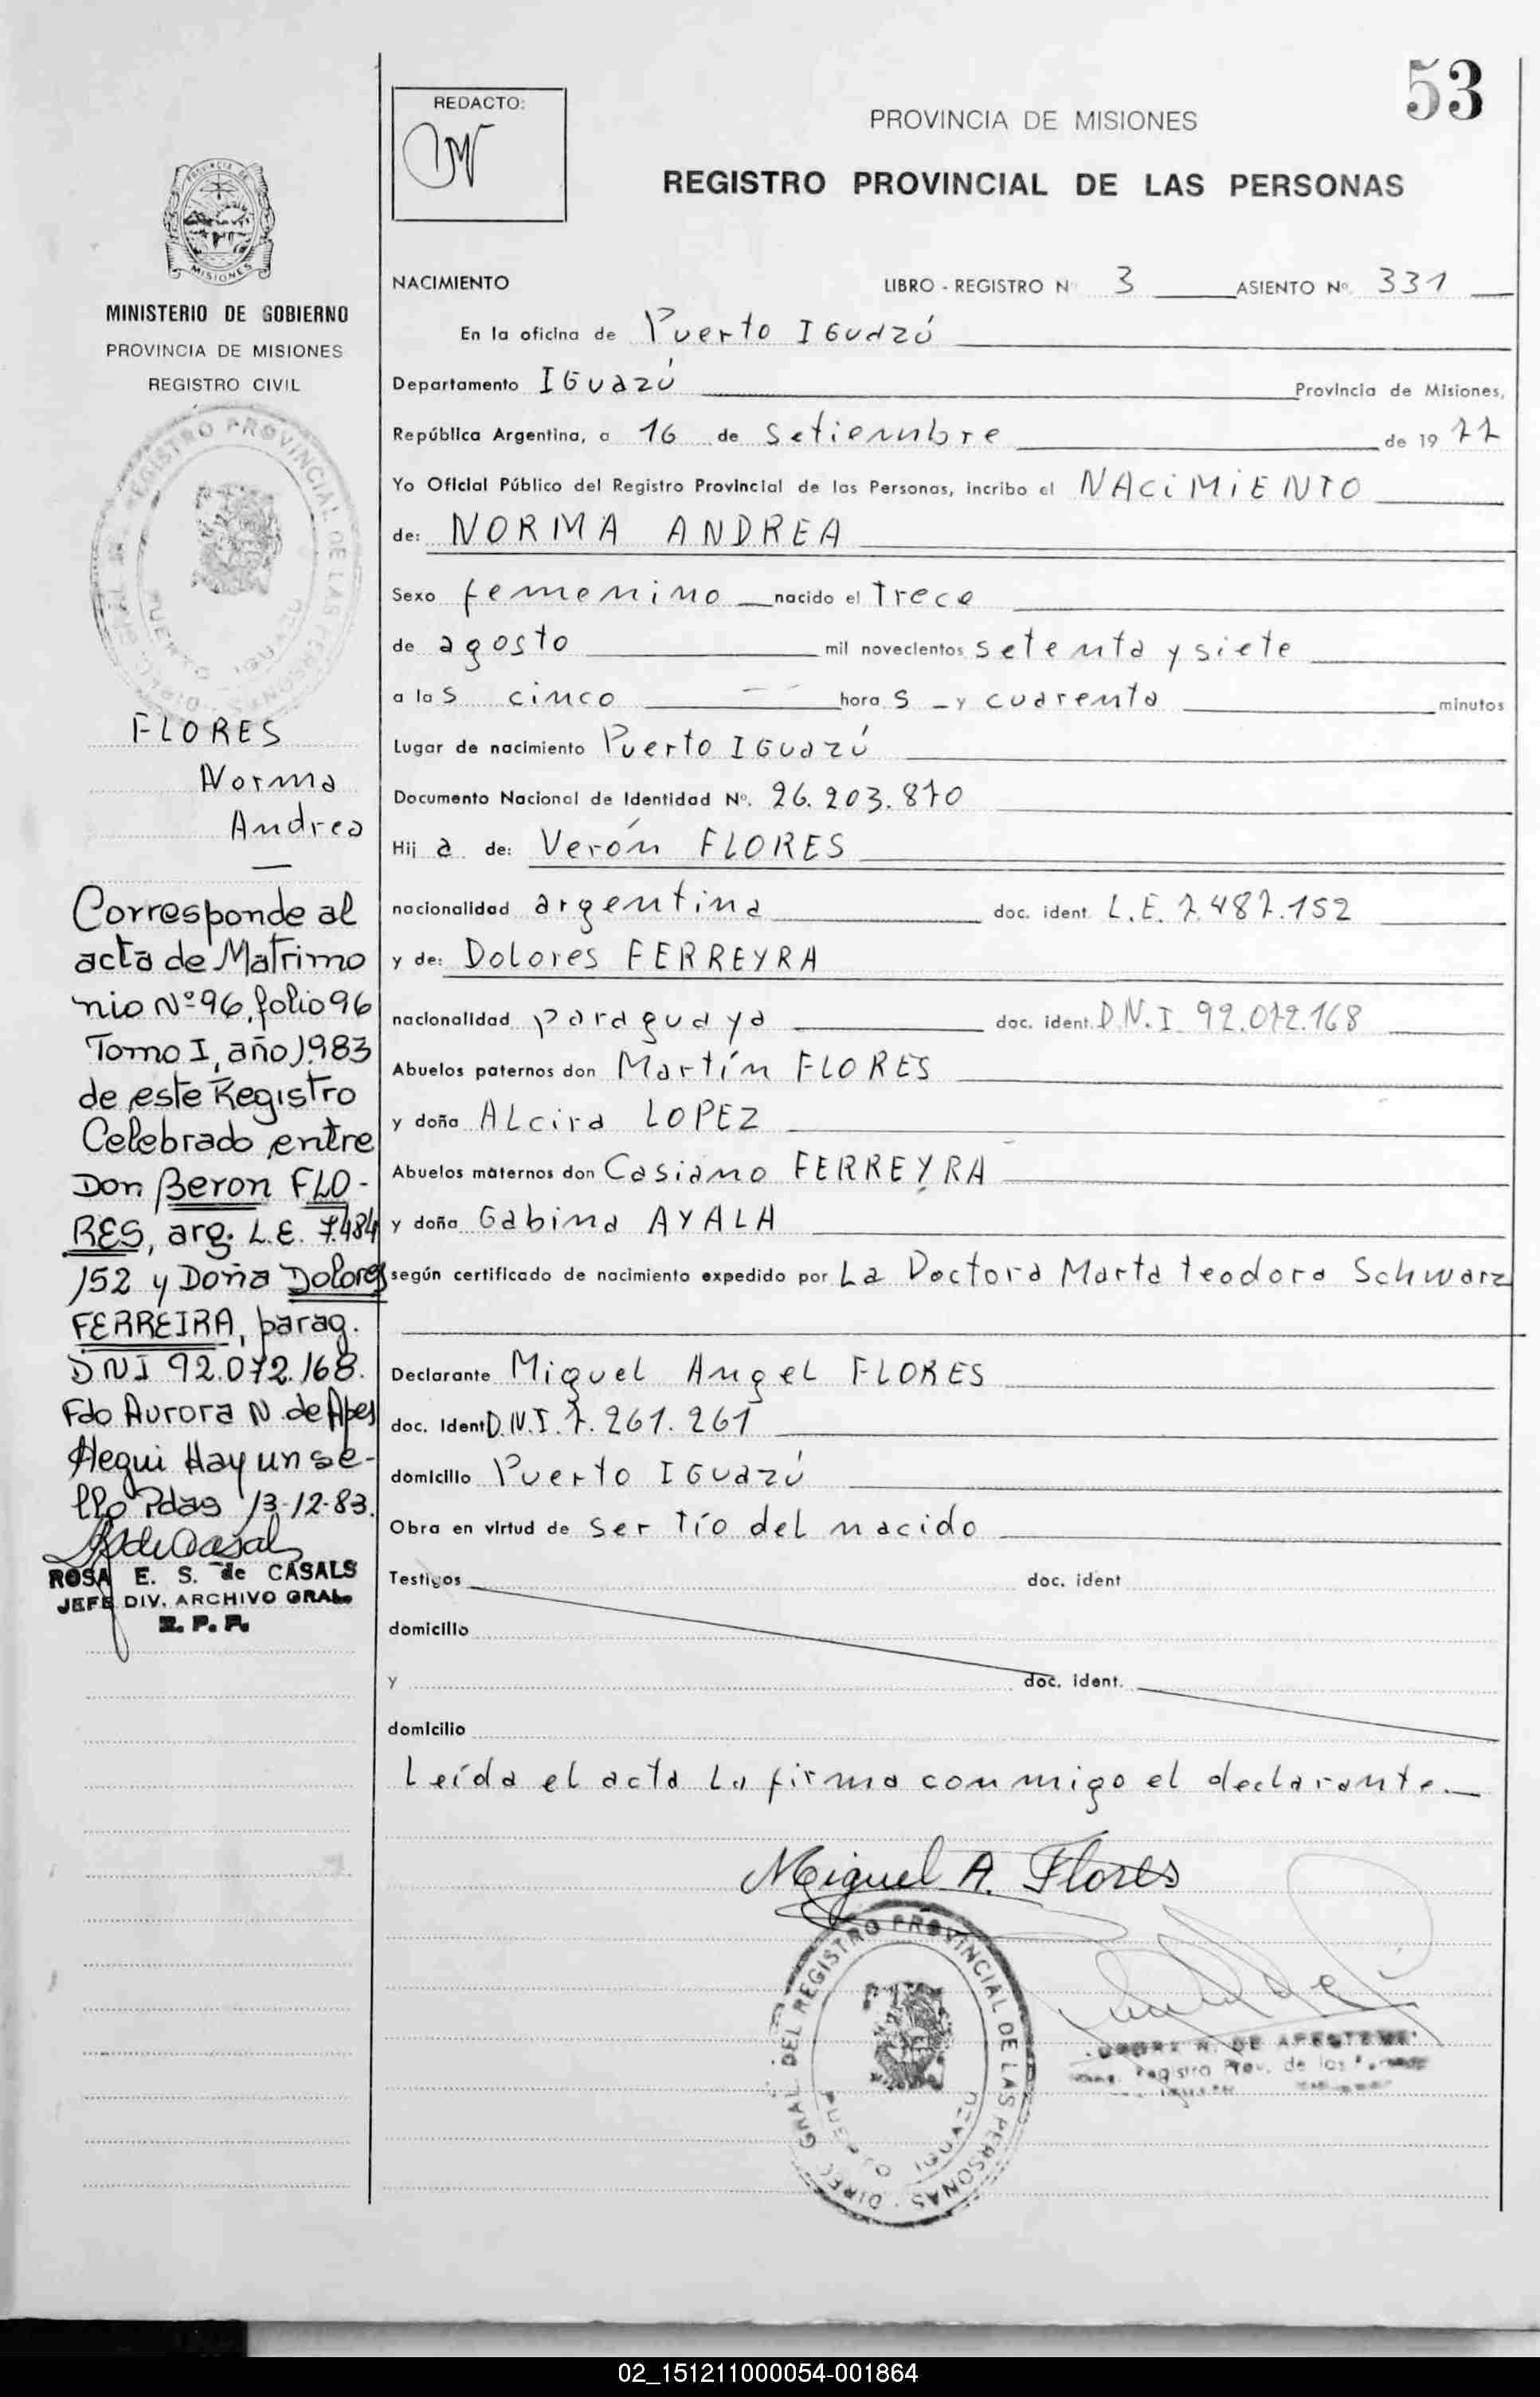 53
REDACTO:
PROVINCIA DE MISIONES
REGISTRO PROVINCIAL DE LAS PERSONAS
NACIMIENTO LIBRO - REGISTRO Nº 3 ASIENTO Nº 331
En la oficina de Puerto IGuazú
Departamento IGuazú Provincia de Misiones,
República Argentina, a 16 de setiembre de 1977
Yo Oficial Público del Registro Provincial de las Personas, incribo el NACiMiENTO
de: NORMA ANDREA
Sexo femenino nacido el trece
de agosto mil novecientos setenta y siete
a las cinco horas y cuarenta minutos
Lugar de nacimiento Puerto IGuazú
Documento Nacional de Identidad Nº. 26.203.870
Hija de: Verón FLORES
nacionalidad argentina doc. ident. L.E. 7.487.152
y de: Dolores FERREYRA
nacionalidad paraguaya doc. ident. D.N.I 92.072.168
Abuelos paternos don Martín FLORES
y doña ALcira LOPEZ
Abuelos maternos don Casiano FERREYRA
y doña Gabina AYALA
según certificado de nacimiento expedido por La Doctora Marta teodora Schwarz
Declarante Miguel Angel FLORES
doc. Ident D.N.I. 7.261.261
domicilio Puerto IGuazú
Obra en virtud de ser tío del nacido
Testigos doc. ident
domicilio
y doc. ident.
domicilio
Leída el acta La firma conmigo el declarante.
Miguel A. Flores
DIREC. GRAL. DEL REGISTRO PROVINCIAL DE LAS PERSONAS
PUERTO IGUAZU
N. DE
Registro Prov. de las
PROVINCIA DE
MISIONES
MINISTERIO DE GOBIERNO
PROVINCIA DE MISIONES
REGISTRO CIVIL
REGISTRO PROVINCIAL DE LAS PERSONAS
FLORES
Norma
Andrea
Corresponde al
acta de Matrimo
nio Nº 96, folio 96
Tomo I, año 1983
de este Registro
Celebrado entre
Don Beron FLO-
RES, arg. L.E. 7.484
152 y Doña Dolores
FERREIRA, parag.
DNI 92.072.168.
Fdo Aurora N. de Apes
Hay un se-
llo Pdas 13-12-83.
ROSA E. S. de CASALS
JEFE DIV. ARCHIVO GRAL.
R. P. P.
02_151211000054-001864